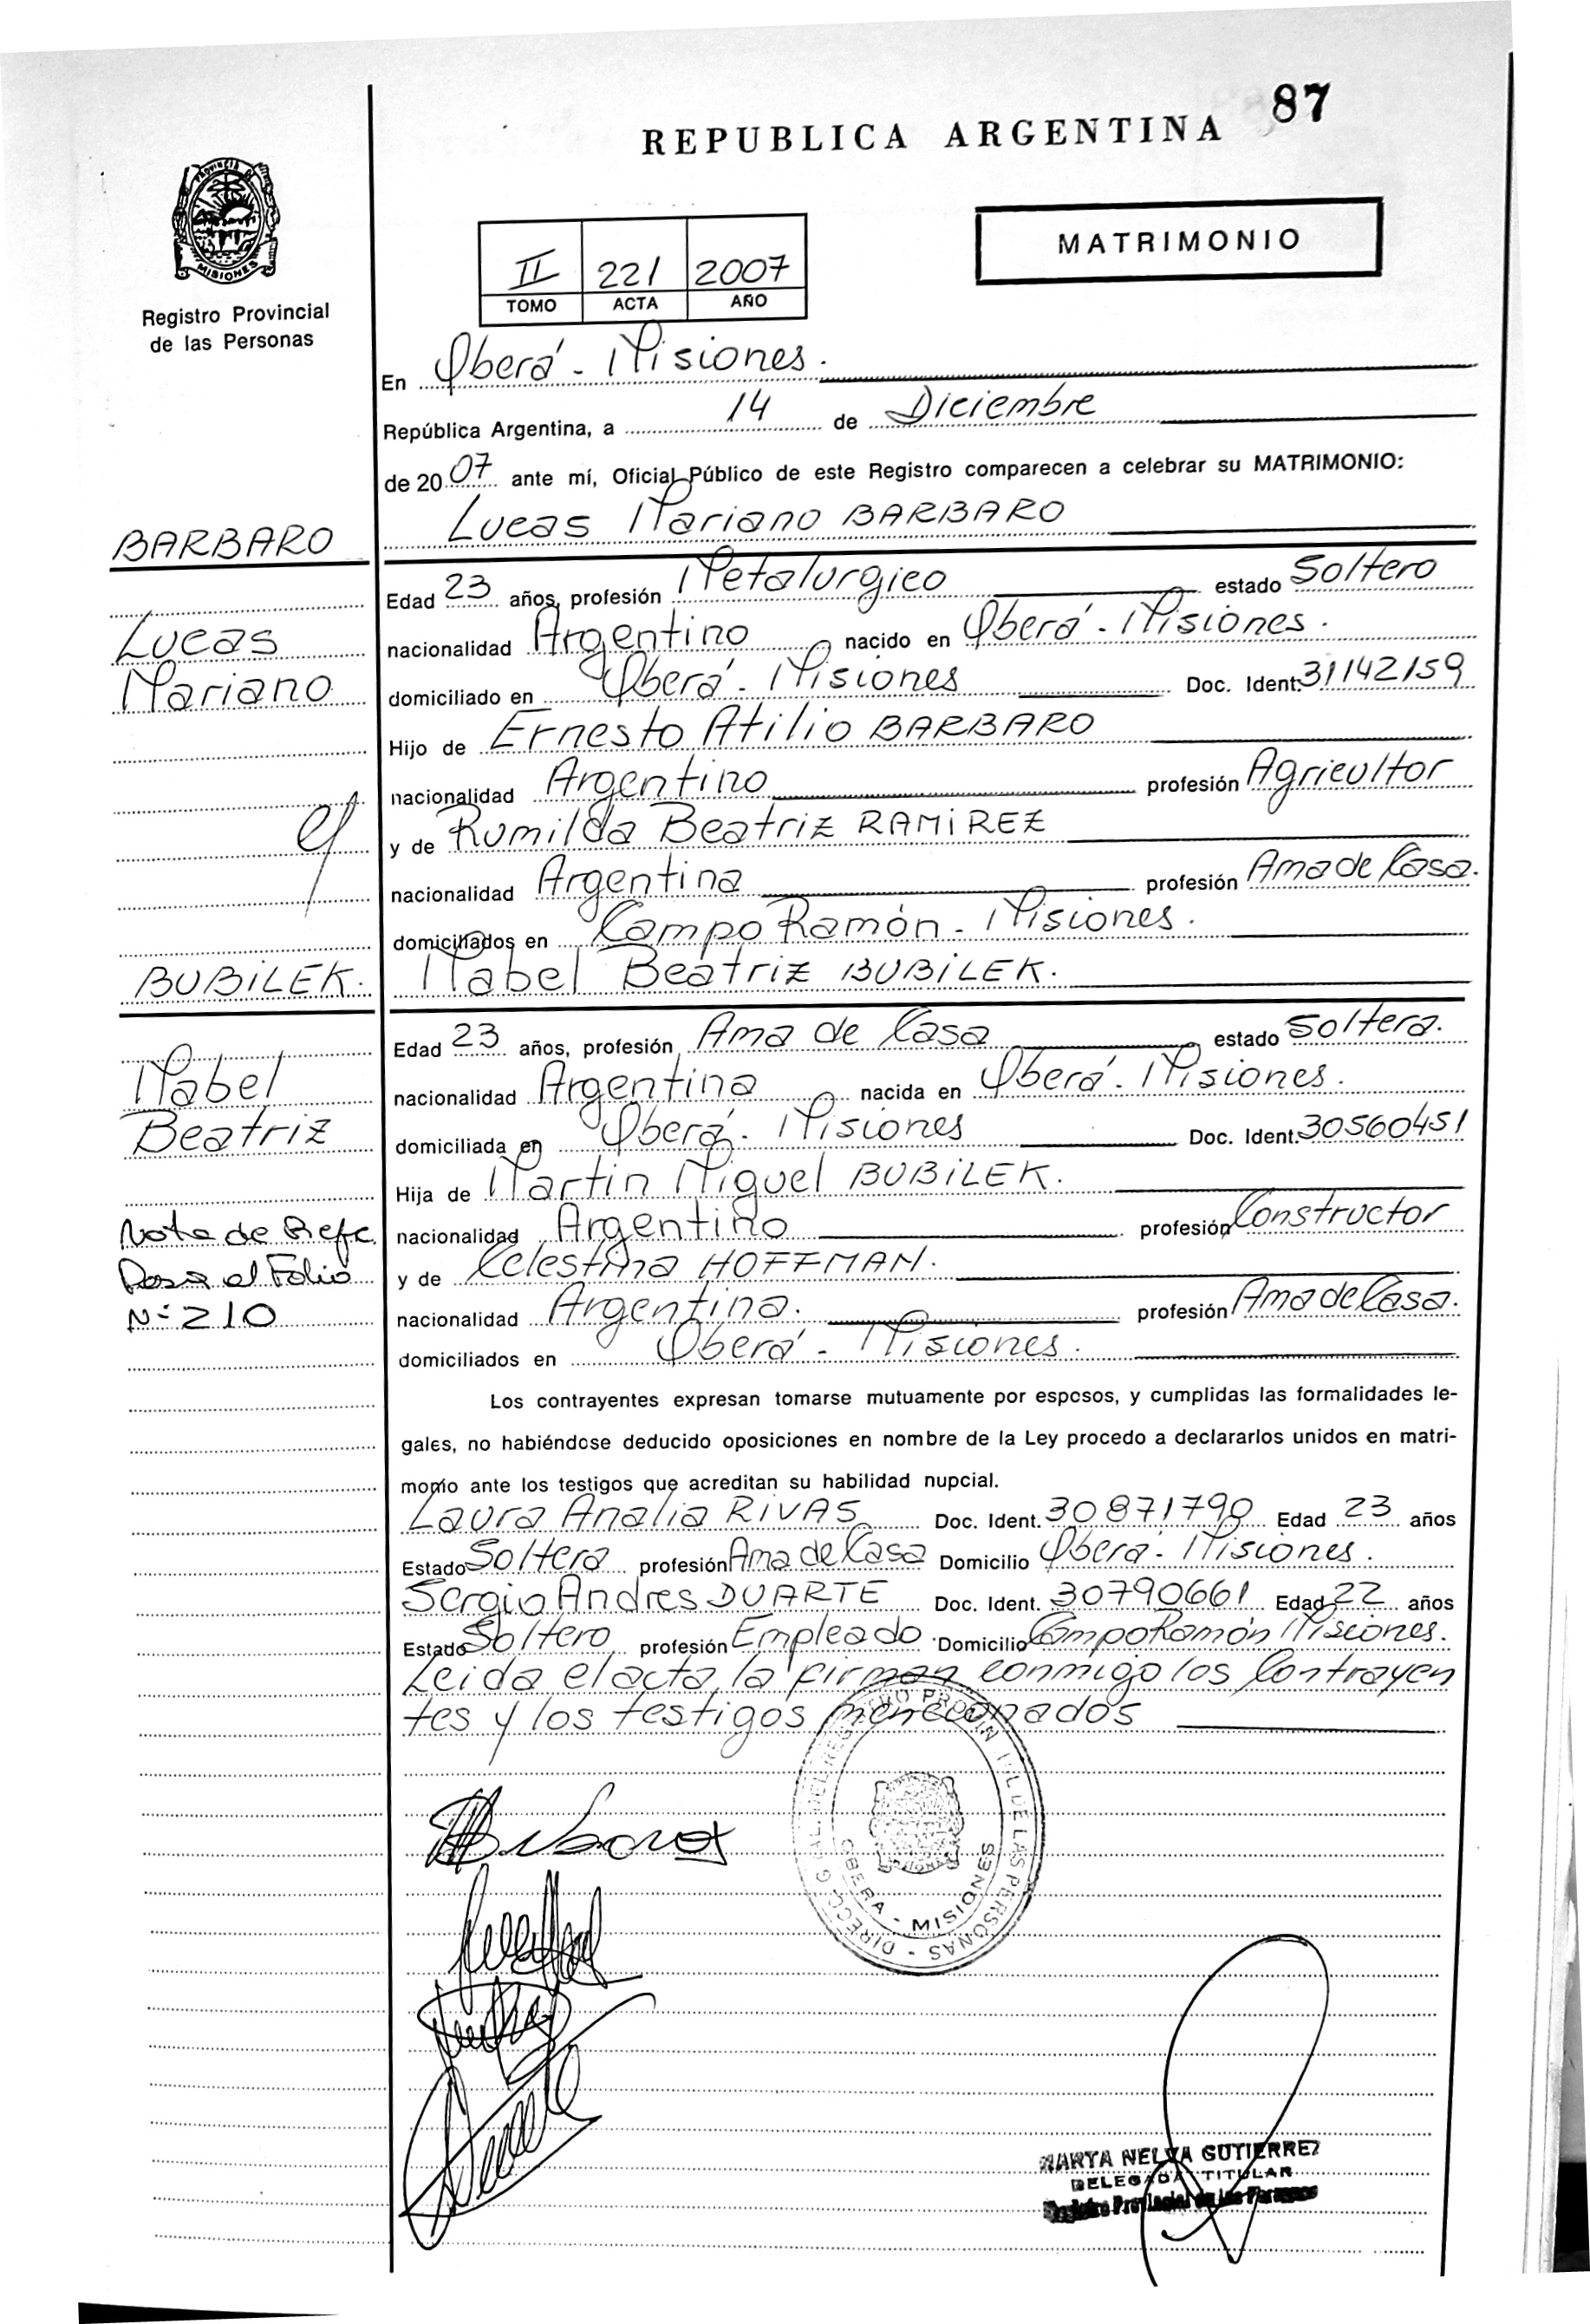 87
REPUBLICA ARGENTINA
PROVINCIA D
MISIONES
Registro Provincial
de las Personas
MATRIMONIO
II 221 2007
TOMO ACTA AÑO
En Oberá - Misiones.
República Argentina, a 14 de Diciembre
de 2007 ante mí, Oficial Público de este Registro comparecen a celebrar su MATRIMONIO:
Lucas Mariano BARBARO
BARBARO
Edad 23 años, profesión Metalurgico estado Soltero
Lucas
nacionalidad Argentino nacido en Oberá - Misiones.
Mariano
domiciliado en Oberá - Misiones Doc. Ident. 31142159
Hijo de Ernesto Atilio BARBARO
nacionalidad Argentino profesión Agricultor
y
y de Romilda Beatriz RAMiREZ
nacionalidad Argentina profesión Ama de Casa.
domiciliados en Campo Ramón - Misiones.
BUBiLEK.
Mabel Beatriz BUBiLEK.
Edad 23 años, profesión Ama de Casa estado Soltera.
Mabel
nacionalidad Argentina nacida en Oberá - Misiones.
Beatriz
domiciliada en Oberá - Misiones Doc. Ident. 30560451
Hija de Martin Miguel BUBiLEK.
Nota de Refe.
nacionalidad Argentino profesión Constructor
Pasa al Folio
y de Celestina HOFFMAN.
Nº 210
nacionalidad Argentina. profesión Ama de Casa.
domiciliados en Oberá - Misiones.
Los contrayentes expresan tomarse mutuamente por esposos, y cumplidas las formalidades le-
gales, no habiéndose deducido oposiciones en nombre de la Ley procedo a declararlos unidos en matri-
monio ante los testigos que acreditan su habilidad nupcial.
Laura Analia RIVAS Doc. Ident. 30871790 Edad 23 años
Estado Soltera profesión Ama de Casa Domicilio Oberá - Misiones.
Sergio Andres DUARTE Doc. Ident. 30790661 Edad 22 años
Estado Soltero profesión Empleado Domicilio Campo Ramón Misiones.
Leida el acta, la firman conmigo los Contrayen
tes y los testigos mencionados
DIRECC. GRAL. DEL REGISTRO PROVINCIAL DE LAS PERSONAS
OBERA - MISIONES
MARTA NELVA GUTIERREZ
DELEGADA TITULAR
Registro Provincial de las Personas